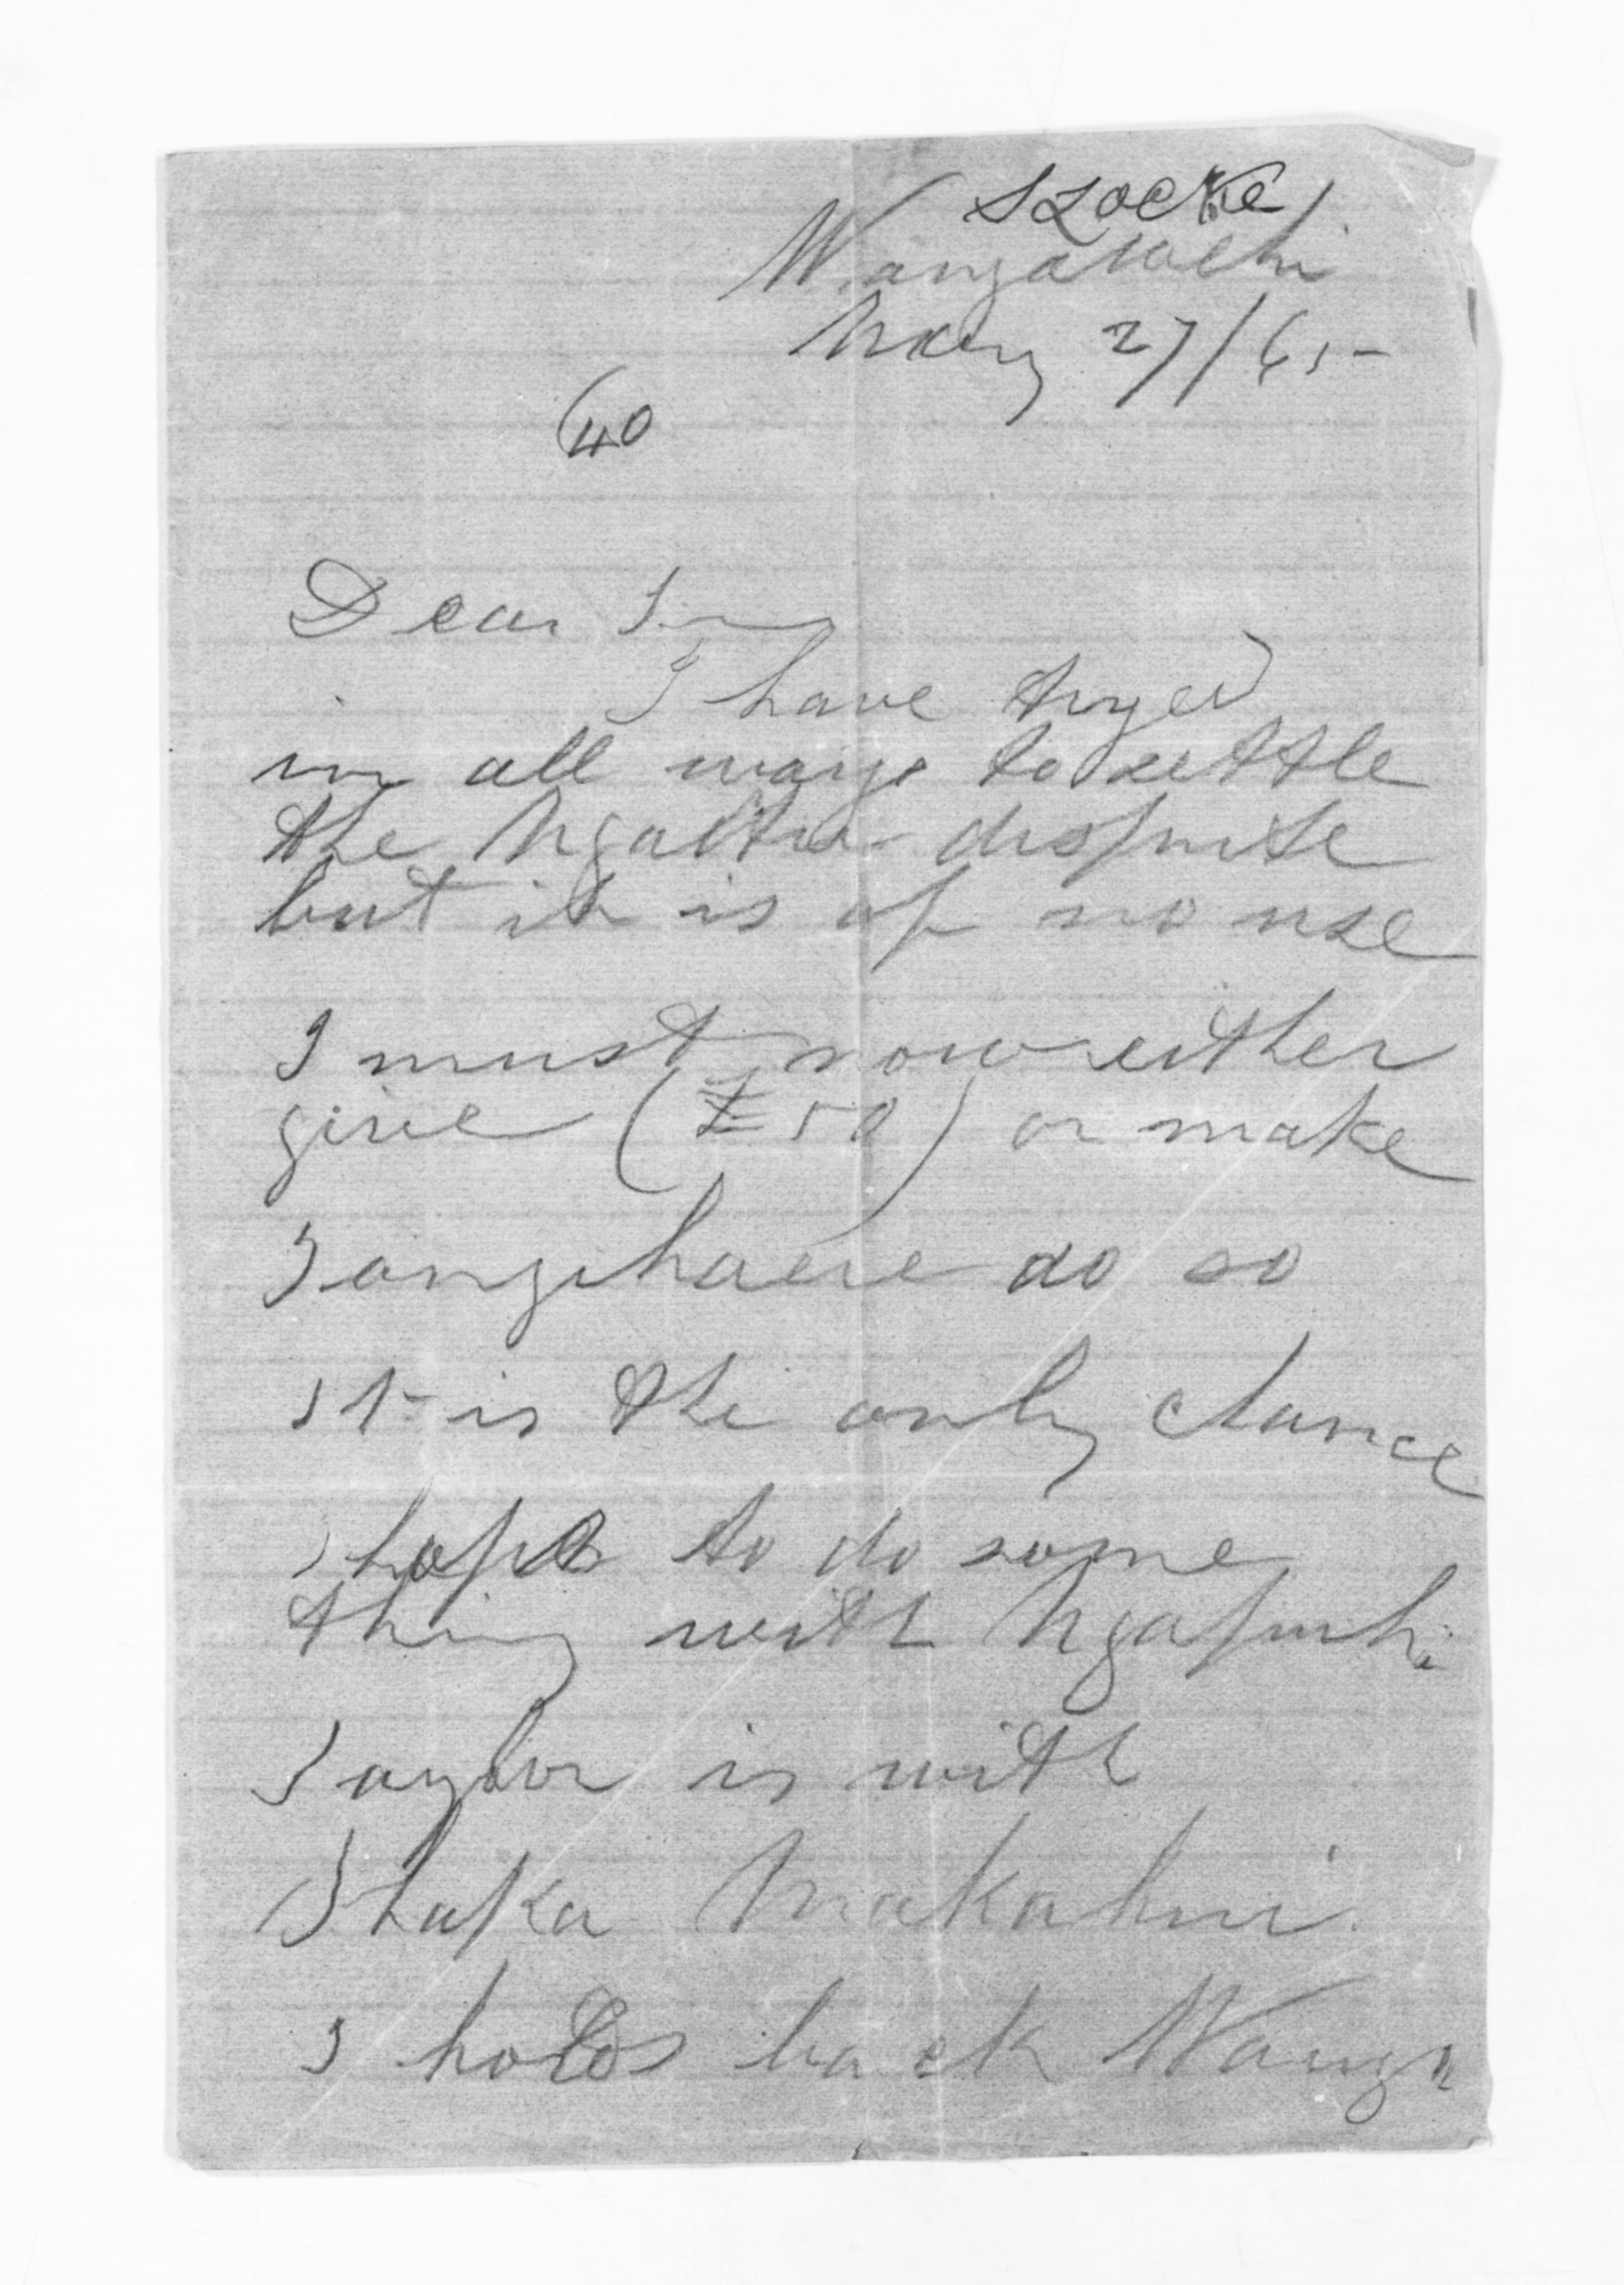 S Locke
Wangawehi
May 27/65
(40
Dear Sir
I have tryed
in all ways to settle
the dispute
but it is of no use
I must now either
give (£50) or make
Tangihaere do so
It is the only chance
I hope to do some
thing with Ngapuhi
Taylor is with
Ihaka Makahui
I holds back Wanga